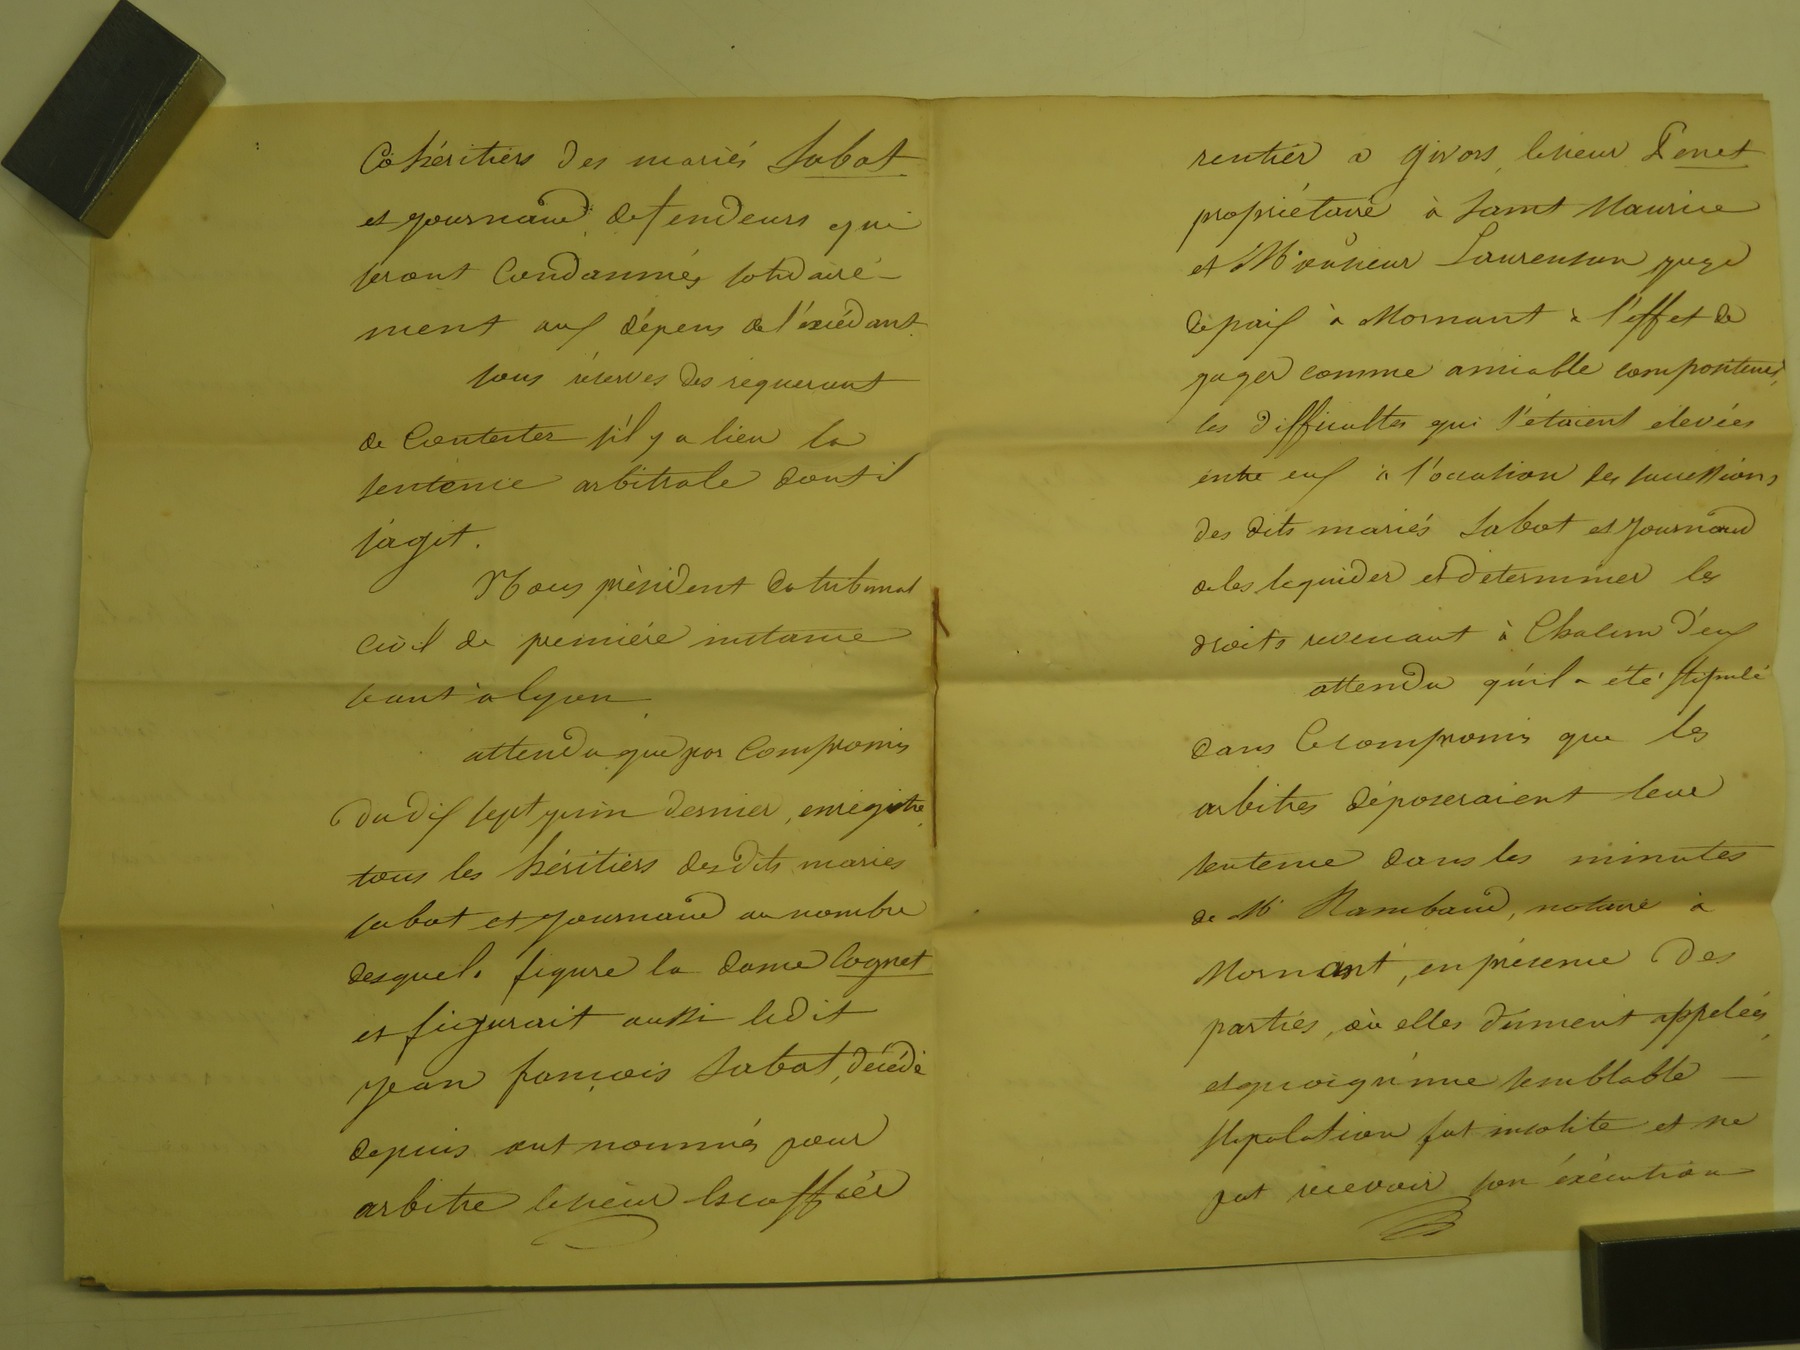 Cohéritiers des mariés Sabot
et Journaud, défendeurs qui
seront Condamnés solidaire-
ment aux dépens de l'excédant.
sous réserves des requerant
de Contester s'il y a lieu la
sentence arbitrale dont il
s'agit.
Nous président du tribunal
civil de première instance
séant à Lyon
attendu que par Compromis
du dix sept juin dernier, enregistré,
tous les héritiers desdits mariés
Sabot et Journaud au nombre
desquels figure la dame Cognet
et figurait aussi ledit
Jean françois Sabot, décédé
depuis ont nommés pour
arbitre lesieur Escoffier
rentier a givors, lesieur Penet
propriétaire à Saint Maurice
et Monsieur Laurenson juge
de paix à Mornant à l'effet de
juger comme amiable compositeurs,
les difficultés qui s'étaient élevées
entre eux à l'occasion des successions
des dits mariés Sabot et Journaud
de les liquider et determiner les
droits revenant à Chacun d'eux
attendu qu'il a été stipulé
dans le compromis que les
arbitres déposeraient leur
sentence dans les minutes
de Me Rambaud, notaire à
Mornant, en présence des
parties, où elles dûment appelées,
et quoiqu'une semblable
stipulation fut insolite et ne
put recevoir son éxécution